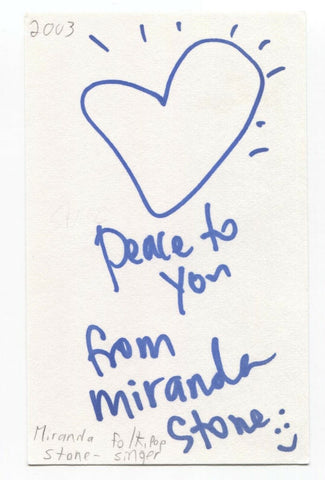 2003
Peace to
you
from
miranda
stone
Miranda folk, pop
Stone- singer